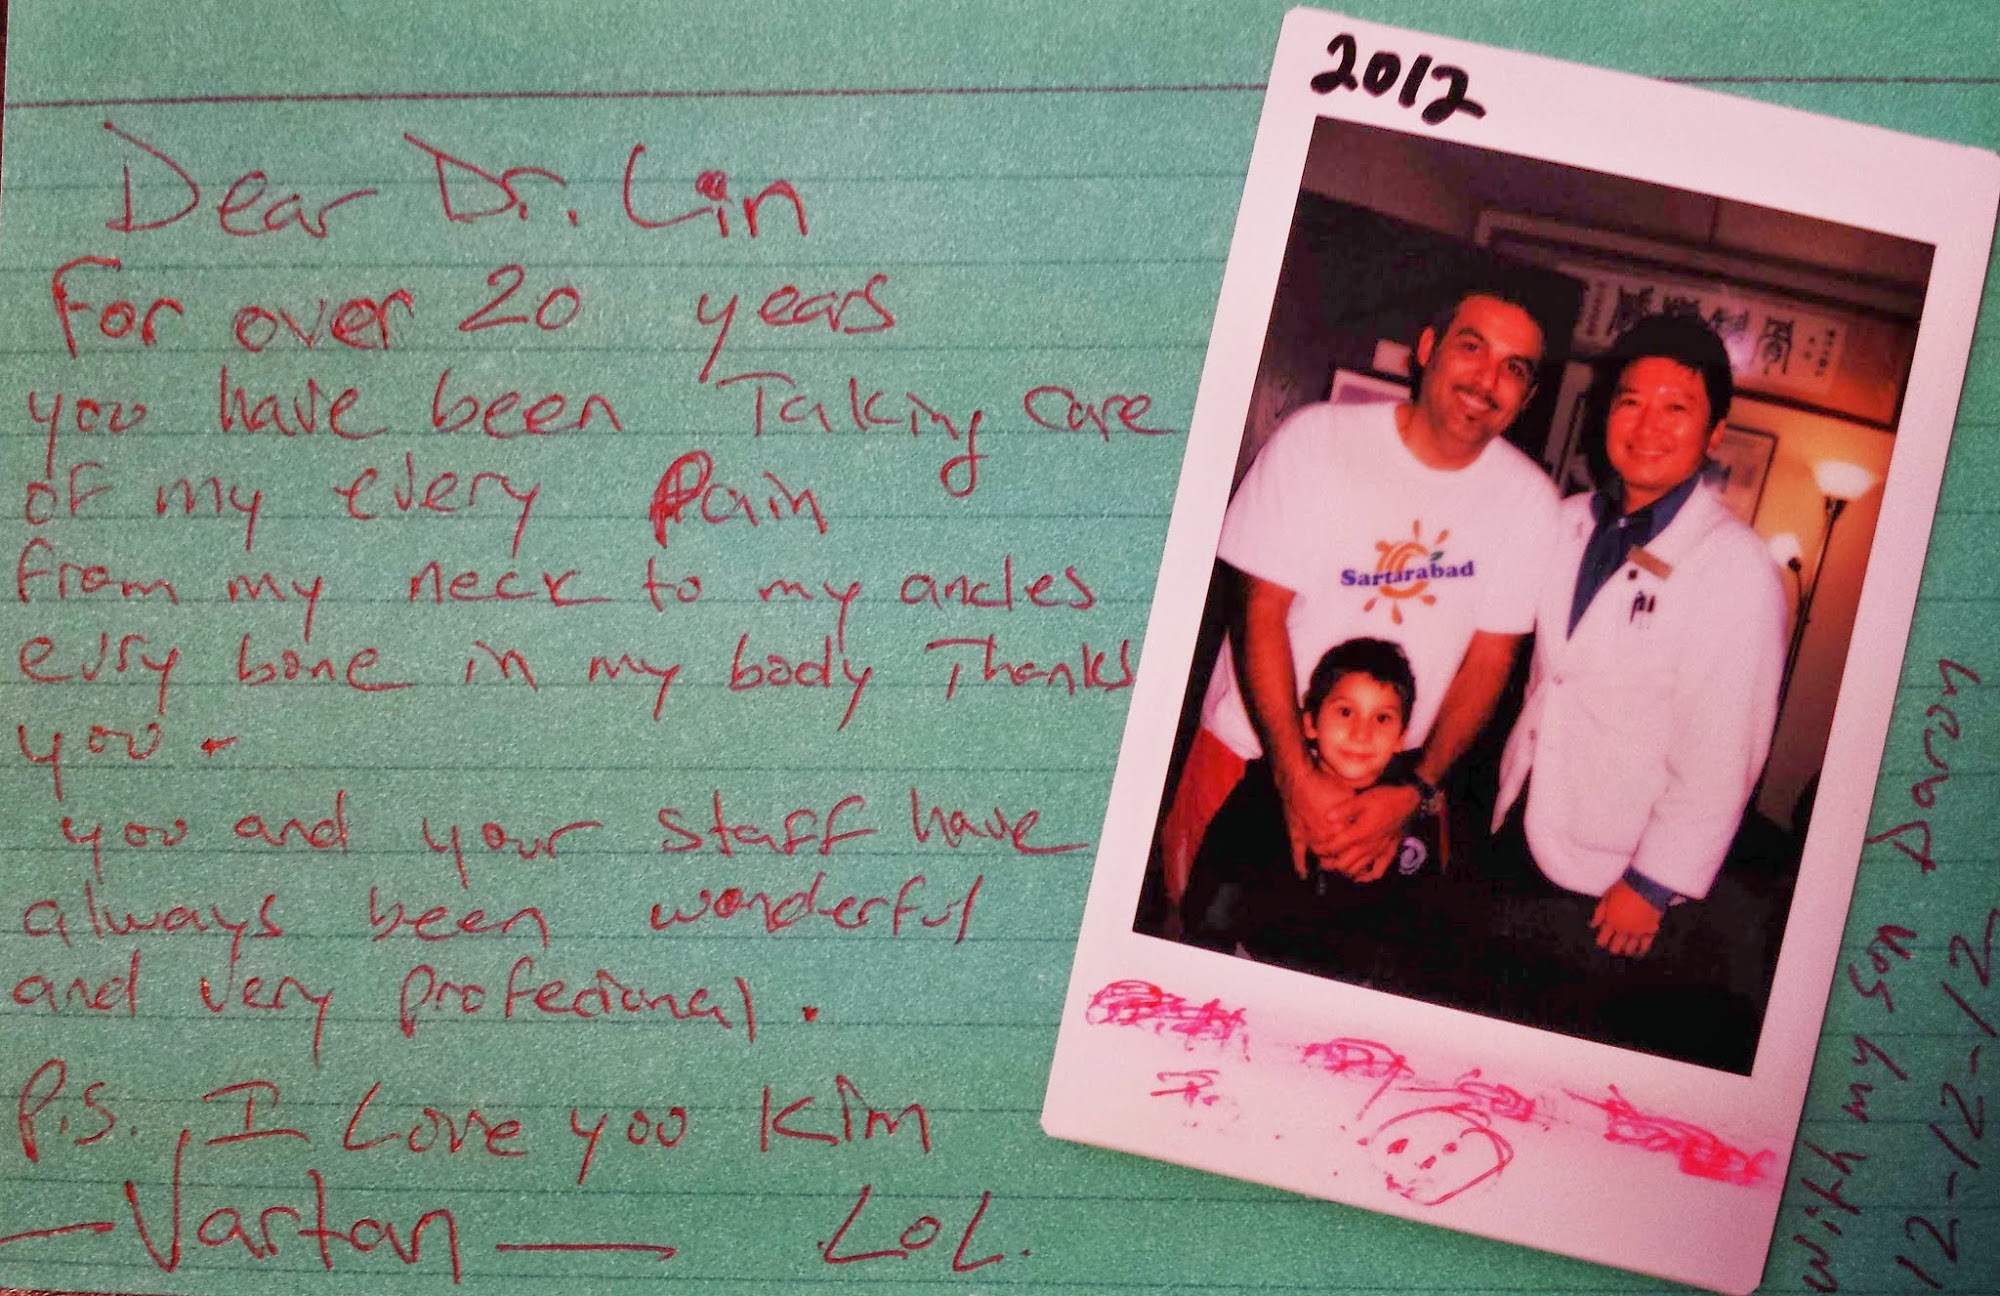 Dear Dr. Lin
For over 20 years
you have been Taking care
of my every Pain
from my neck to my ancles
evry bone in my body Thanks
you.
you and your staff have
always been wonderful
and very profecional.
P.S. I Love you Kim
— Vartan — LOL.
2012
Sartarabad
with my son Daron
12-12-12